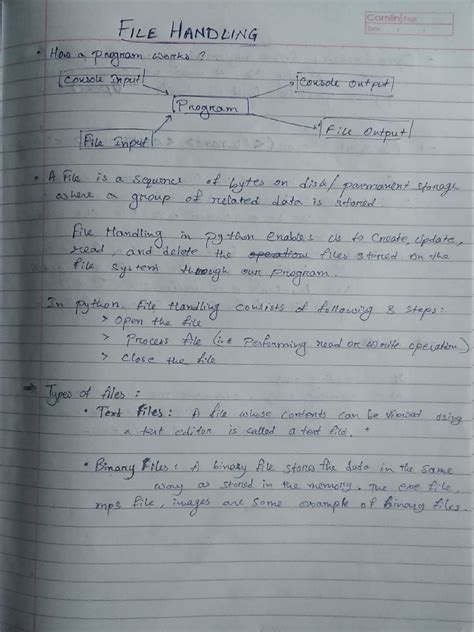 Camlin Page
Date / /
FILE HANDLING
• How a program works ?
Console Input
Console Output
Program
File Input
File Output
• A File is a sequence of bytes on disk/ parmanent storage
where a group of related data is stored.
File Handling in python enables us to create, update,
read, and delete the operation files stored on the
file system through our program.
In python, File Handling consists of following 3 steps:
> Open the file
> Process file (i.e performing read or write operation)
> Close the file
Types of files :
• Text Files : A file whose contents can be viewed using
a text editor is called a text file.
• Binary Files : A binary file stores the data in the same
way as stored in the memory. The exe file,
mp3 file, images are some example of binary files.